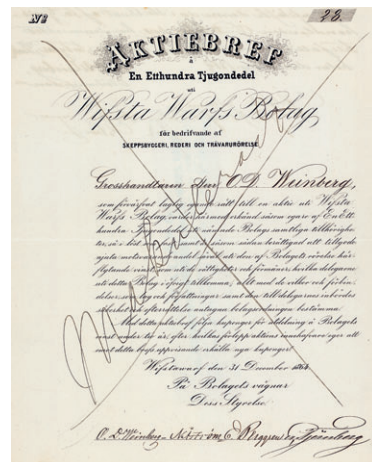 No 28.
AKTIEBREF
å
En Etthundra Tjugondedel
uti
Wifsta Warfs Bolag
för bedrifvande af
SKEPPSBYGGERI, REDERI OCH TRÄVARURÖRELSE.
Grosshandlaren Herr O. D. Weinberg,
som förvärfvat laglig eganderätt till en aktie uti Wifsta
Warfs Bolag, varder härmed erkänd såsom egare af En Ett-
hundra Tjugondedel i nämnde Bolags samtliga tillhörighe-
ter,
flytande vinst som de rättigheter och förmåner, hvilka delegarne
uti detta Bolag i öfrigt tillkomma, allt med de vilkor och förbin-
delser, som lag och författningar samt den till delegarnes inbördes
säkerhet och efterrättelse antagna bolagsordningen bestämma.
Med detta aktiebref följa kuponger för utdelning å Bolagets
vinst under tio år, efter hvilkas förlopp aktiens innehafvare eger att
mot detta brefs uppvisande erhålla nya kuponger.
Wifstawarf den 31 December 1864.
På Bolagets vägnar
Dess Styrelse.
O. D. Weinberg